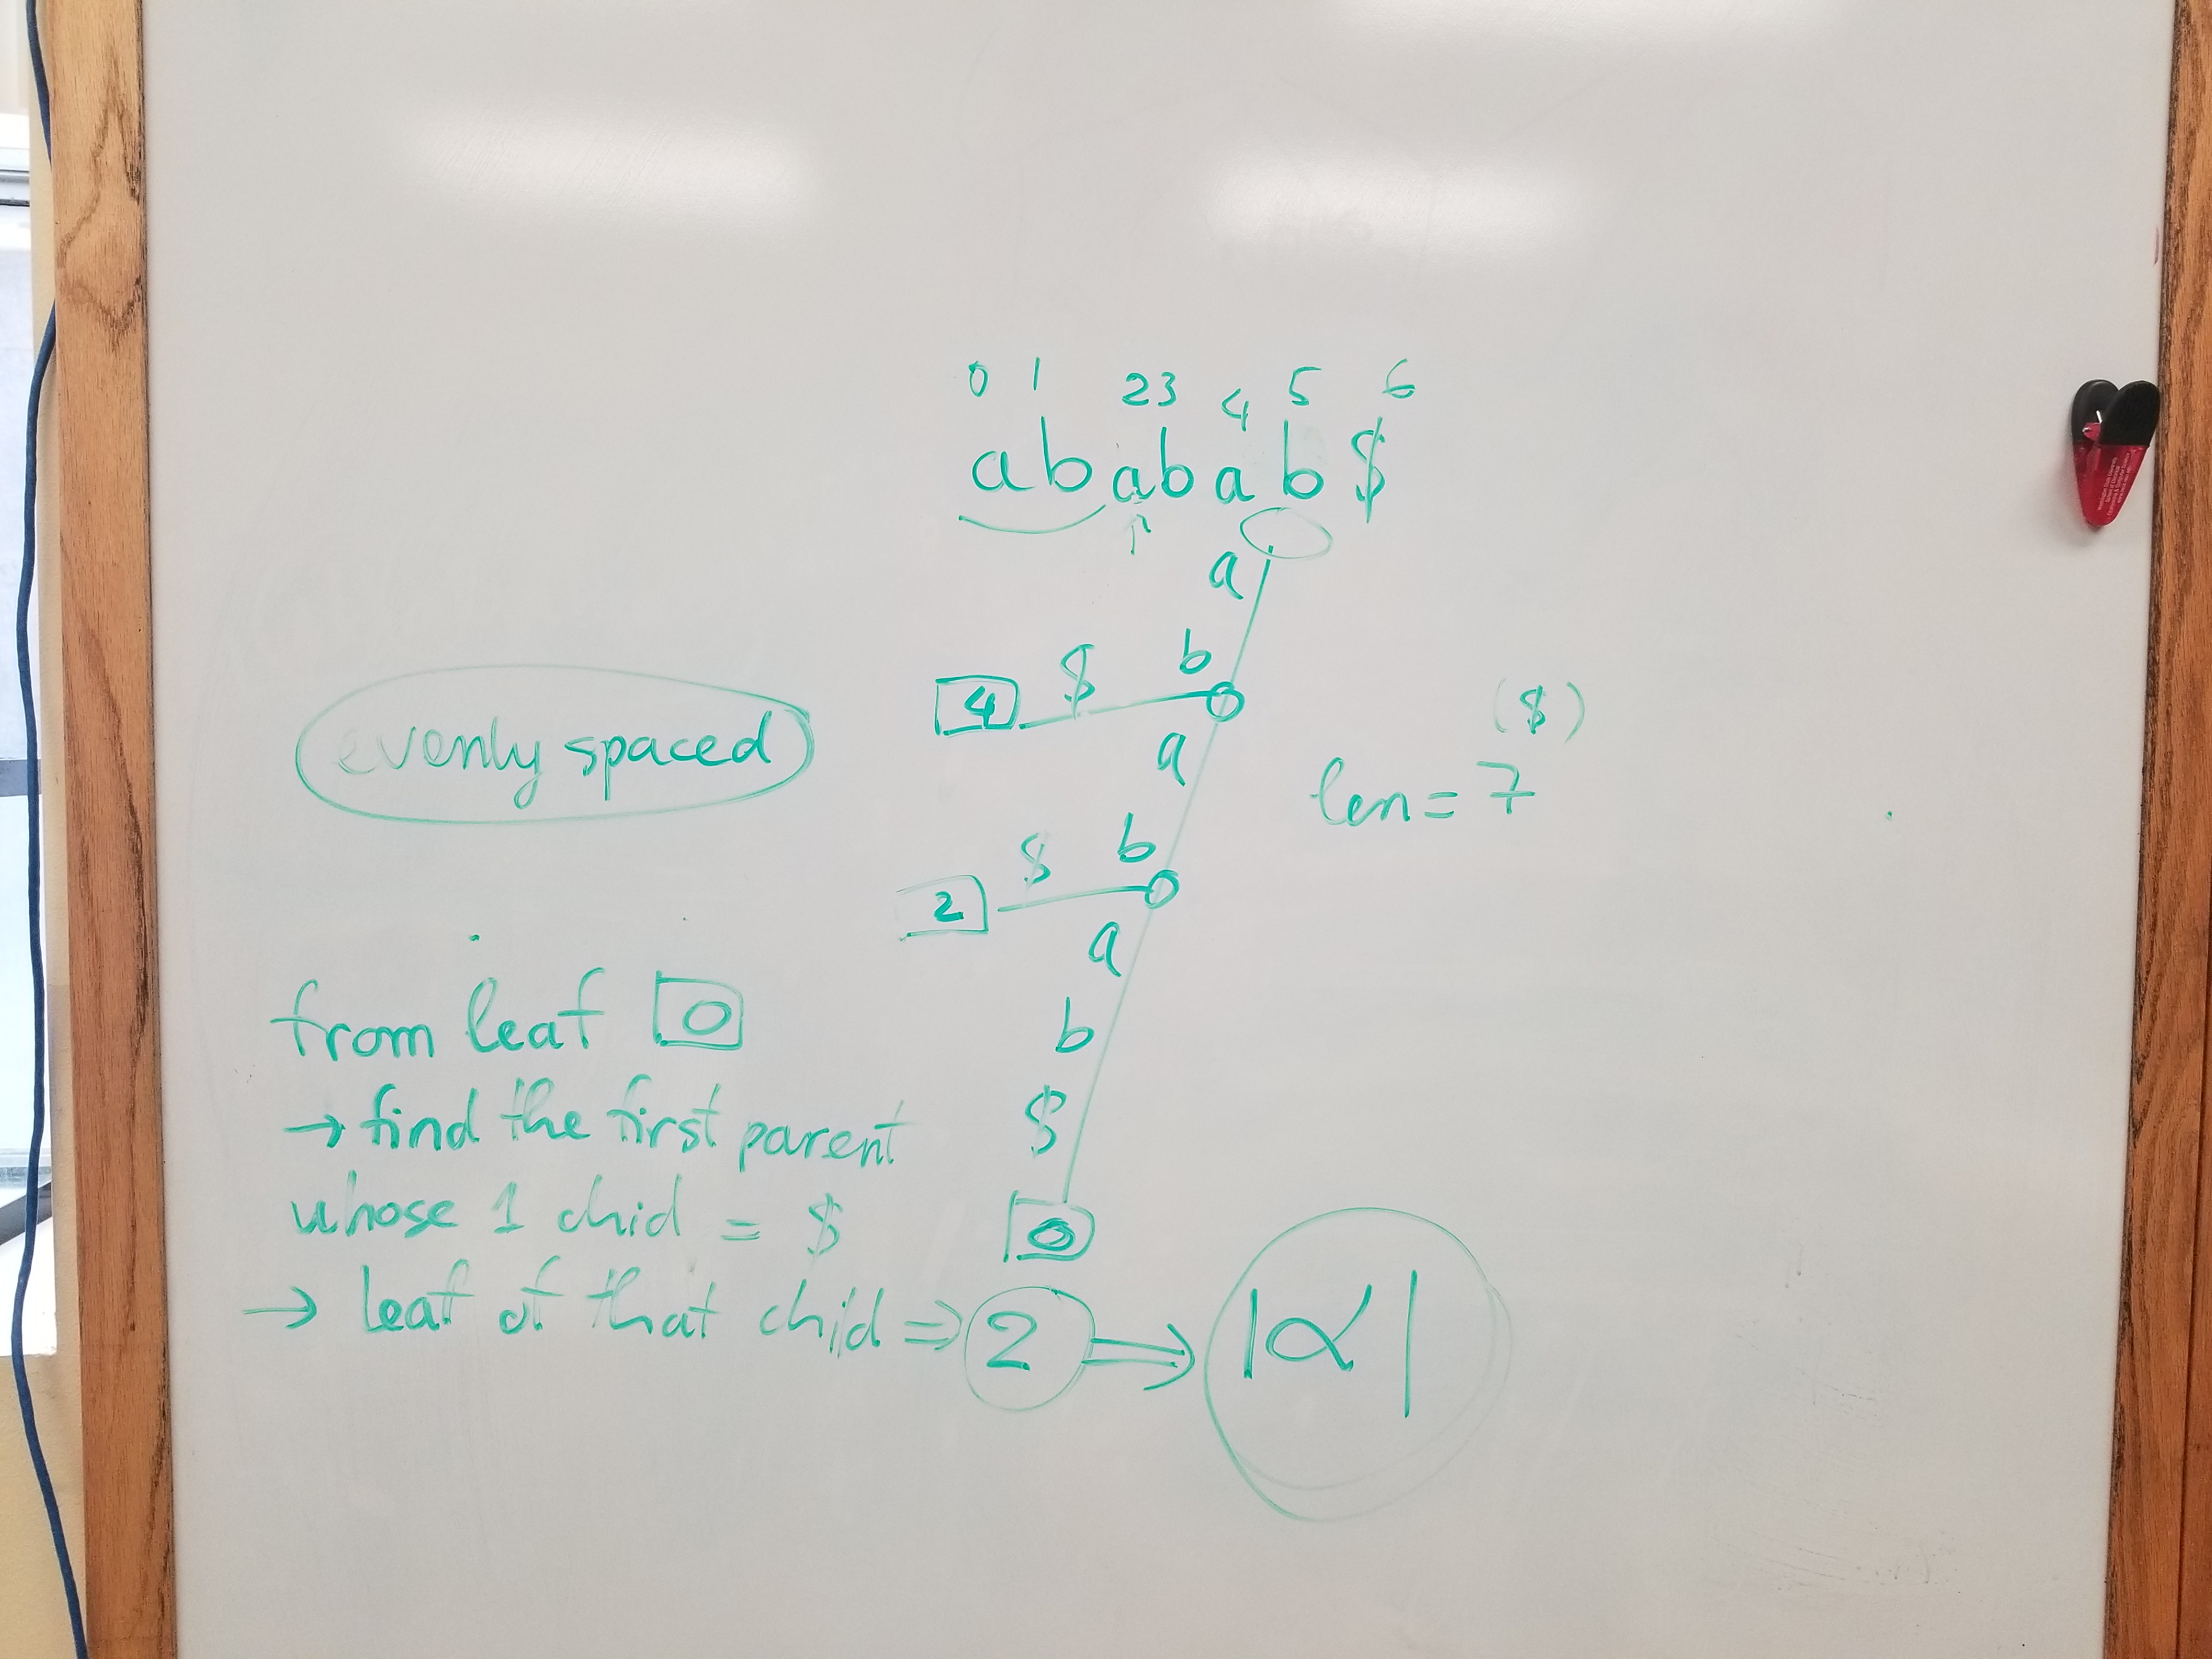 0 1 2 3 4 5 6
a b a b a b $
↑
a
b
4 $
a
b
2 $
a
b
$
0
($)
len = 7
evenly spaced
from leaf 0
→ find the first parent
whose 1 chid = $
→ leaf of that chid ⇒ 2 ⇒ |α|